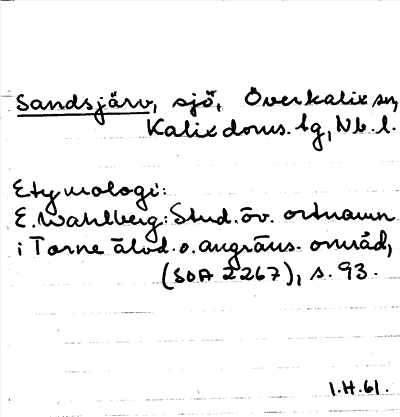 Sandsjärv, sjö, Överkalix sn,
Kalix doms. tg, Nb. l.
Etymologi:
E. Wahlberg: Stud. öv. ortnamn
i Torne älvd. o. angräns. område,
(SOA 2267), s. 93.
I.H. 61.